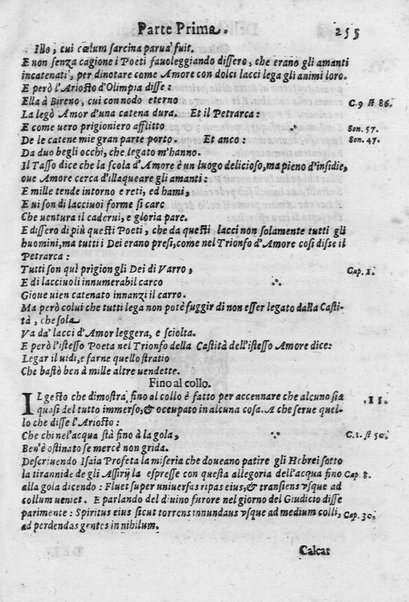 Parte Prima. 255
Illo, cui cælum sarcina parua fuit.
E non senza cagione i Poeti fauoleggiando dissero, che erano gli amanti
incatenati, per dinotare come Amore con dolci lacci lega gli animi loro.
E però l'Ariosto d'Olimpia disse:
Ella à Bireno, cui con nodo eterno C. 9 st 86.
La legò Amor d'una catena dura. Et il Petrarca:
E come uero prigioniero afflitto Son. 57.
De le catene mie gran parte porto. Et anco: Son. 47.
Da duo begli occhi, che legato m'hanno.
Il Tasso dice che la scola d'Amore è un luogo delicioso, ma pieno d'insidie,
oue Amore cerca d'illaqueare gli amanti:
E mille tende intorno e reti, ed hami,
E ui son di lacciuoi forme sì care
Che uentura il caderui, e gloria pare.
E dissero di più questi Poeti, che da questi lacci non solamente tutti gli
huomini, ma tutti i Dei erano presi, come nel Trionfo d'Amore così disse il
Petrarca:
Tutti son quì prigion gli Dei di Varro, Cap. 1.
E di lacciuoli innumerabil carco
Gioue uien catenato innanzi il carro.
Ma però colui che tutti lega non potè fuggir di non esser legato dalla Casti
tà, che sola
Va da' lacci d'Amor leggera, e sciolta.
E però l'istesso Poeta nel Trionfo della Castità dell'istesso Amore dice:
Legar il uidi, e farne quello stratio
Che bastò ben à mille altre uendette.
Fino al collo.
IL gesto che dimostra, fino al collo è fatto per accennare che alcuno sia 11.
quasi del tutto immerso, & occupato in alcuna cosa. A che serue quel-
lo che disse l'Ariosto:
Che chi nel'acqua stà fino à la gola, C. 1. st 50.
Ben'è ostinato se mercè non grida.
Descriuendo Isaia Profeta la miseria che doueano patire gli Hebrei sotto
la tirannide de gli Assirij la espresse con questa allegoria dell'acqua fino Cap. 8.
alla gola dicendo: Fluet super uniuersas ripas eius, & transiens vsque ad
collum ueniet. E parlando del diuino furore nel giorno del Giudicio disse
parimente: Spiritus eius sicut torrens innundans vsque ad medium colli, Cap. 30.
ad perdendas gentes in nihilum.
Calcar